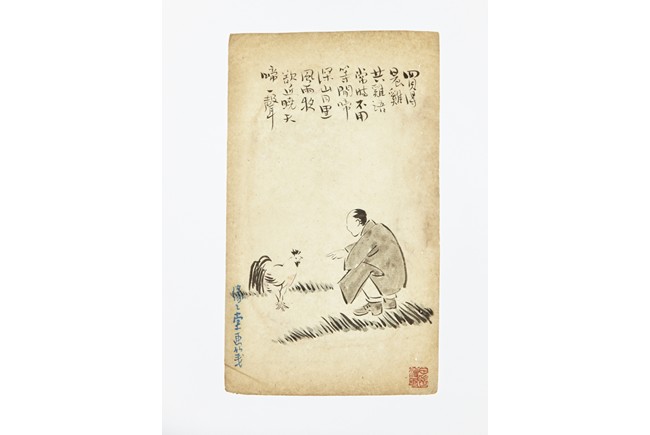 買得
晨雞
共雞語
常時不用
等閒啼
深山月黑
風雨夜
欲近曉天
啼一聲
緣緣堂畫箋